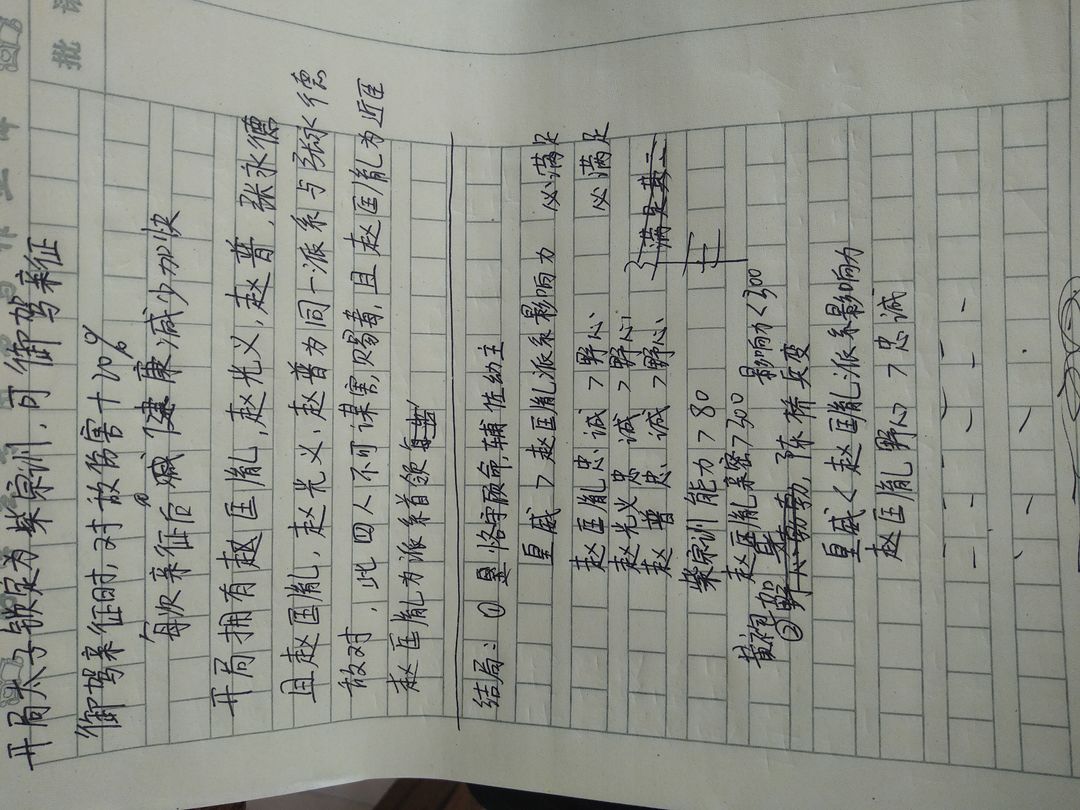 开局太子锁定为柴宗训,可御驾亲征
御驾亲征时,对敌伤害+20%
每次亲征后 健康减少加快
开局拥有赵匡胤,赵光义,赵普,张永德
且赵匡胤,赵光义,赵普为同一派系与张永德
敌对,此四人不可谋害,赐毒,且赵匡胤为近臣
赵匡胤为派系首领
结局:① 恪守顾命,辅佐幼主
皇威>赵匡胤派系影响力 必满足
赵匡胤忠诚>野心 必满足
赵光义忠诚>野心
赵普忠诚>野心
满足其二
柴宗训能力>80
赵匡胤亲密>300 影响力<300
② 黄袍加身,陈桥兵变
皇威<赵匡胤派系影响力
赵匡胤野心>忠诚